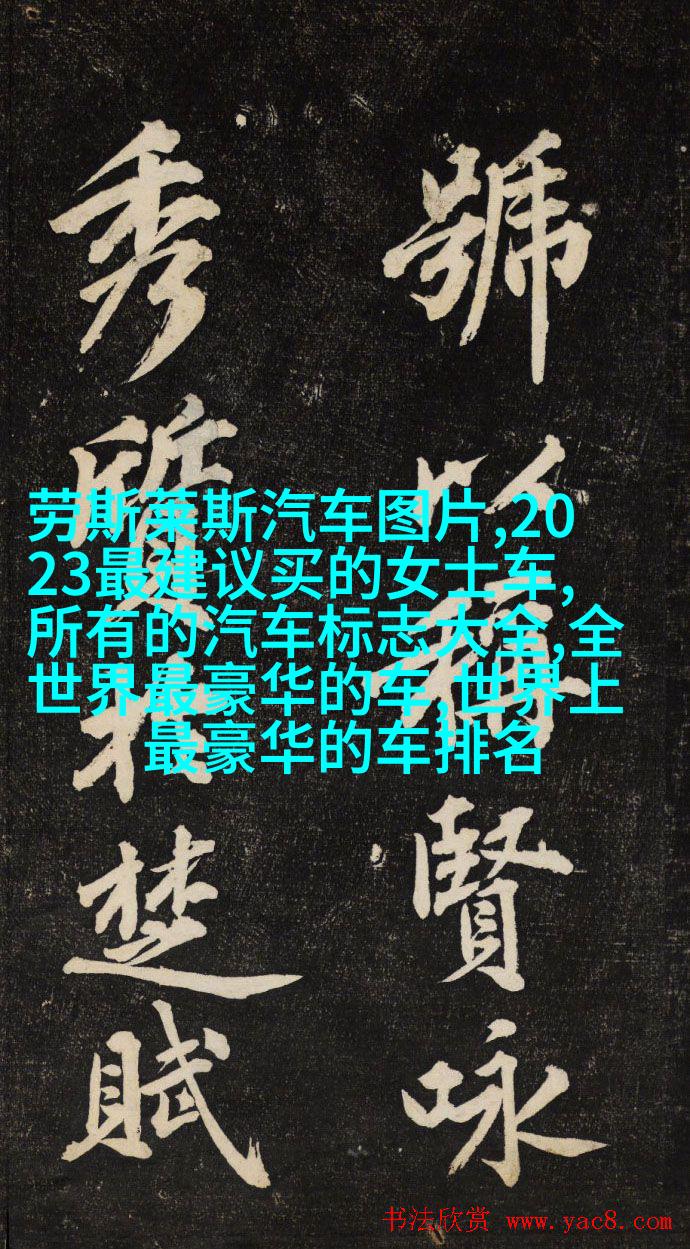 號以稱賢咏
秀楚賦
劳斯莱斯汽车图片,20
23最建议买的女士车,
所有的汽车标志大全,全
世界最豪华的车,世界上
最豪华的车排名
书法欣赏 www.yac8.com